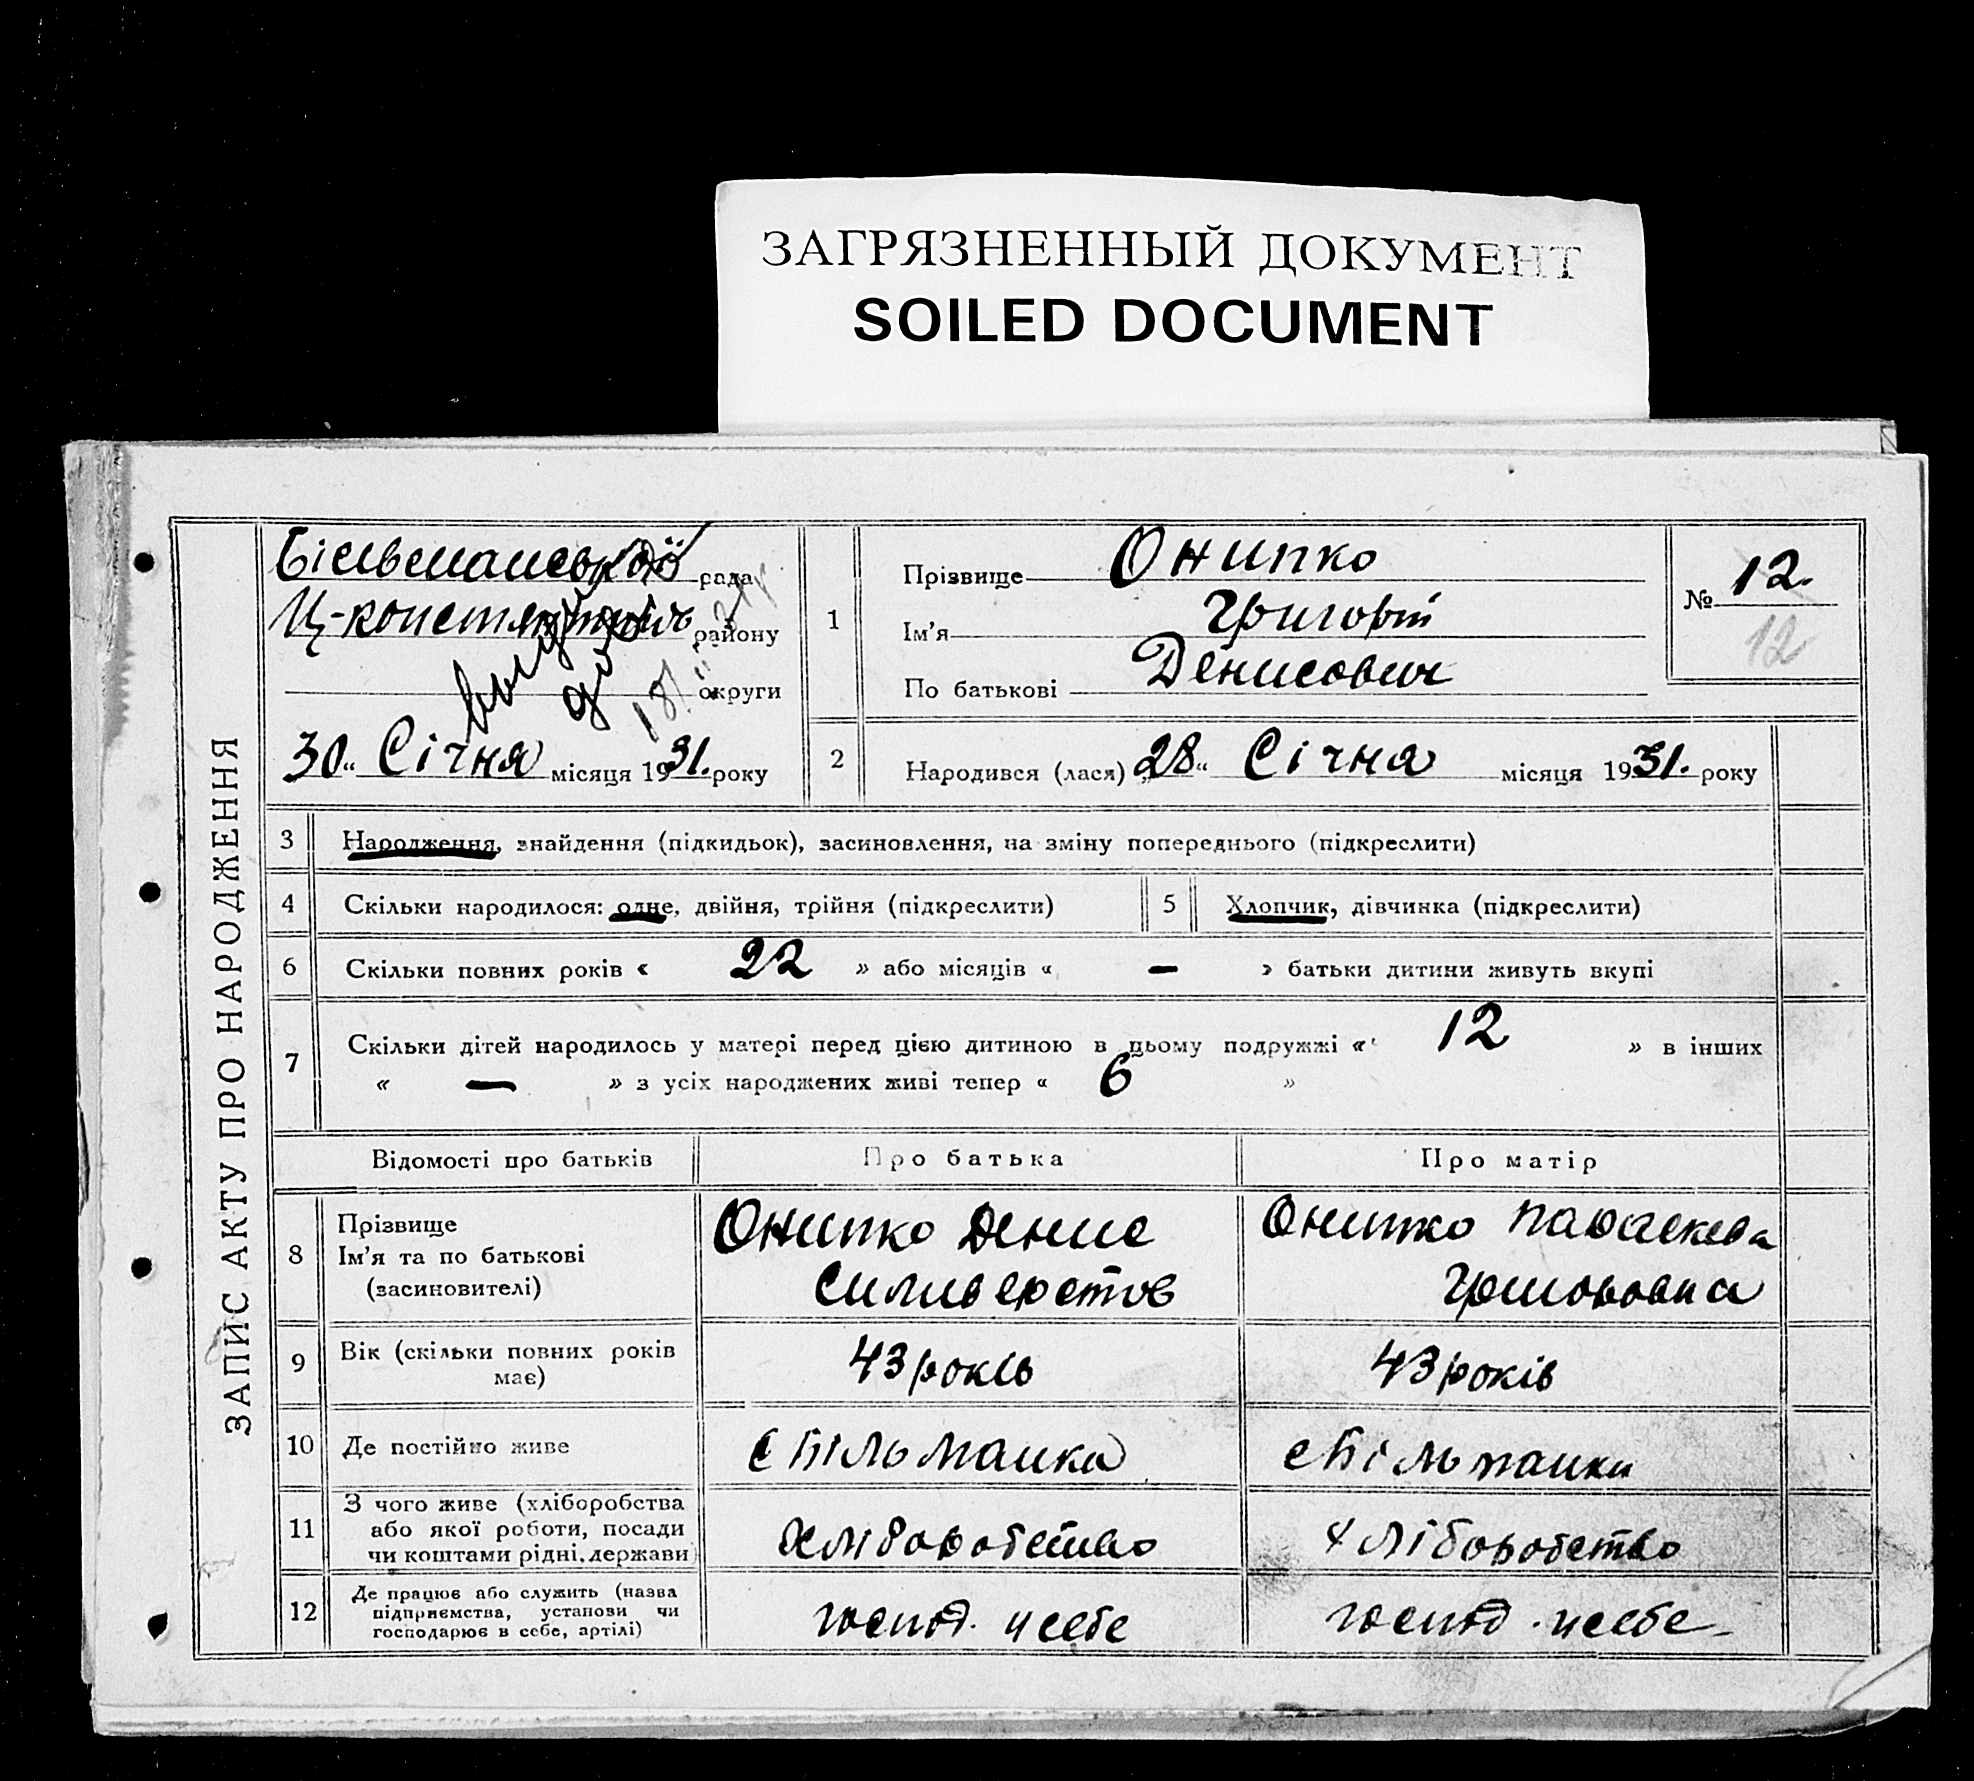 ЗАГРЯЗНЕННЫЙ ДОКУМЕНТ
SOILED DOCUMENT
ЗАПИС АКТУ ПРО НАРОДЖЕННЯ
Більманської рада
Ц-констянтинів району
округи
30 „ Січня місяця 1931. року
1
Прізвище Онипко
Ім'я Григорій
По батькові Денисович
№ 12.
12
2
Народився (лася) „28“ Січня місяця 1931. року
3 Народження, знайдення (підкидьок), засиновлення, на зміну попереднього (підкреслити)
4 Скільки народилося: одне, двійня, трійня (підкреслити)
5 Хлопчик, дівчинка (підкреслити)
6 Скільки повних років « 22 » або місяців « — » батьки дитини живуть вкупі
7 Скільки дітей народилось у матері перед цією дитиною в цьому подружжі « 12 » в інших
« — » з усіх народжених живі тепер « 6 »
Відомості про батьків Про батька Про матір
8 Прізвище
Ім'я та по батькові
(засиновителі)
Онипко Денис
Силиверстов
Онипко Параскева
Григоровна
9 Вік (скільки повних років
має)
43 років
43 років
10 Де постійно живе
с Більманка
с Більманка
11 З чого живе (хліборобства
або якої роботи, посади
чи коштами рідні, держави)
хліборобство
хліборобство
12 Де працює або служить (назва
підприємства, установи чи
господарює в себе, артілі)
господ. у себе
господ. у себе